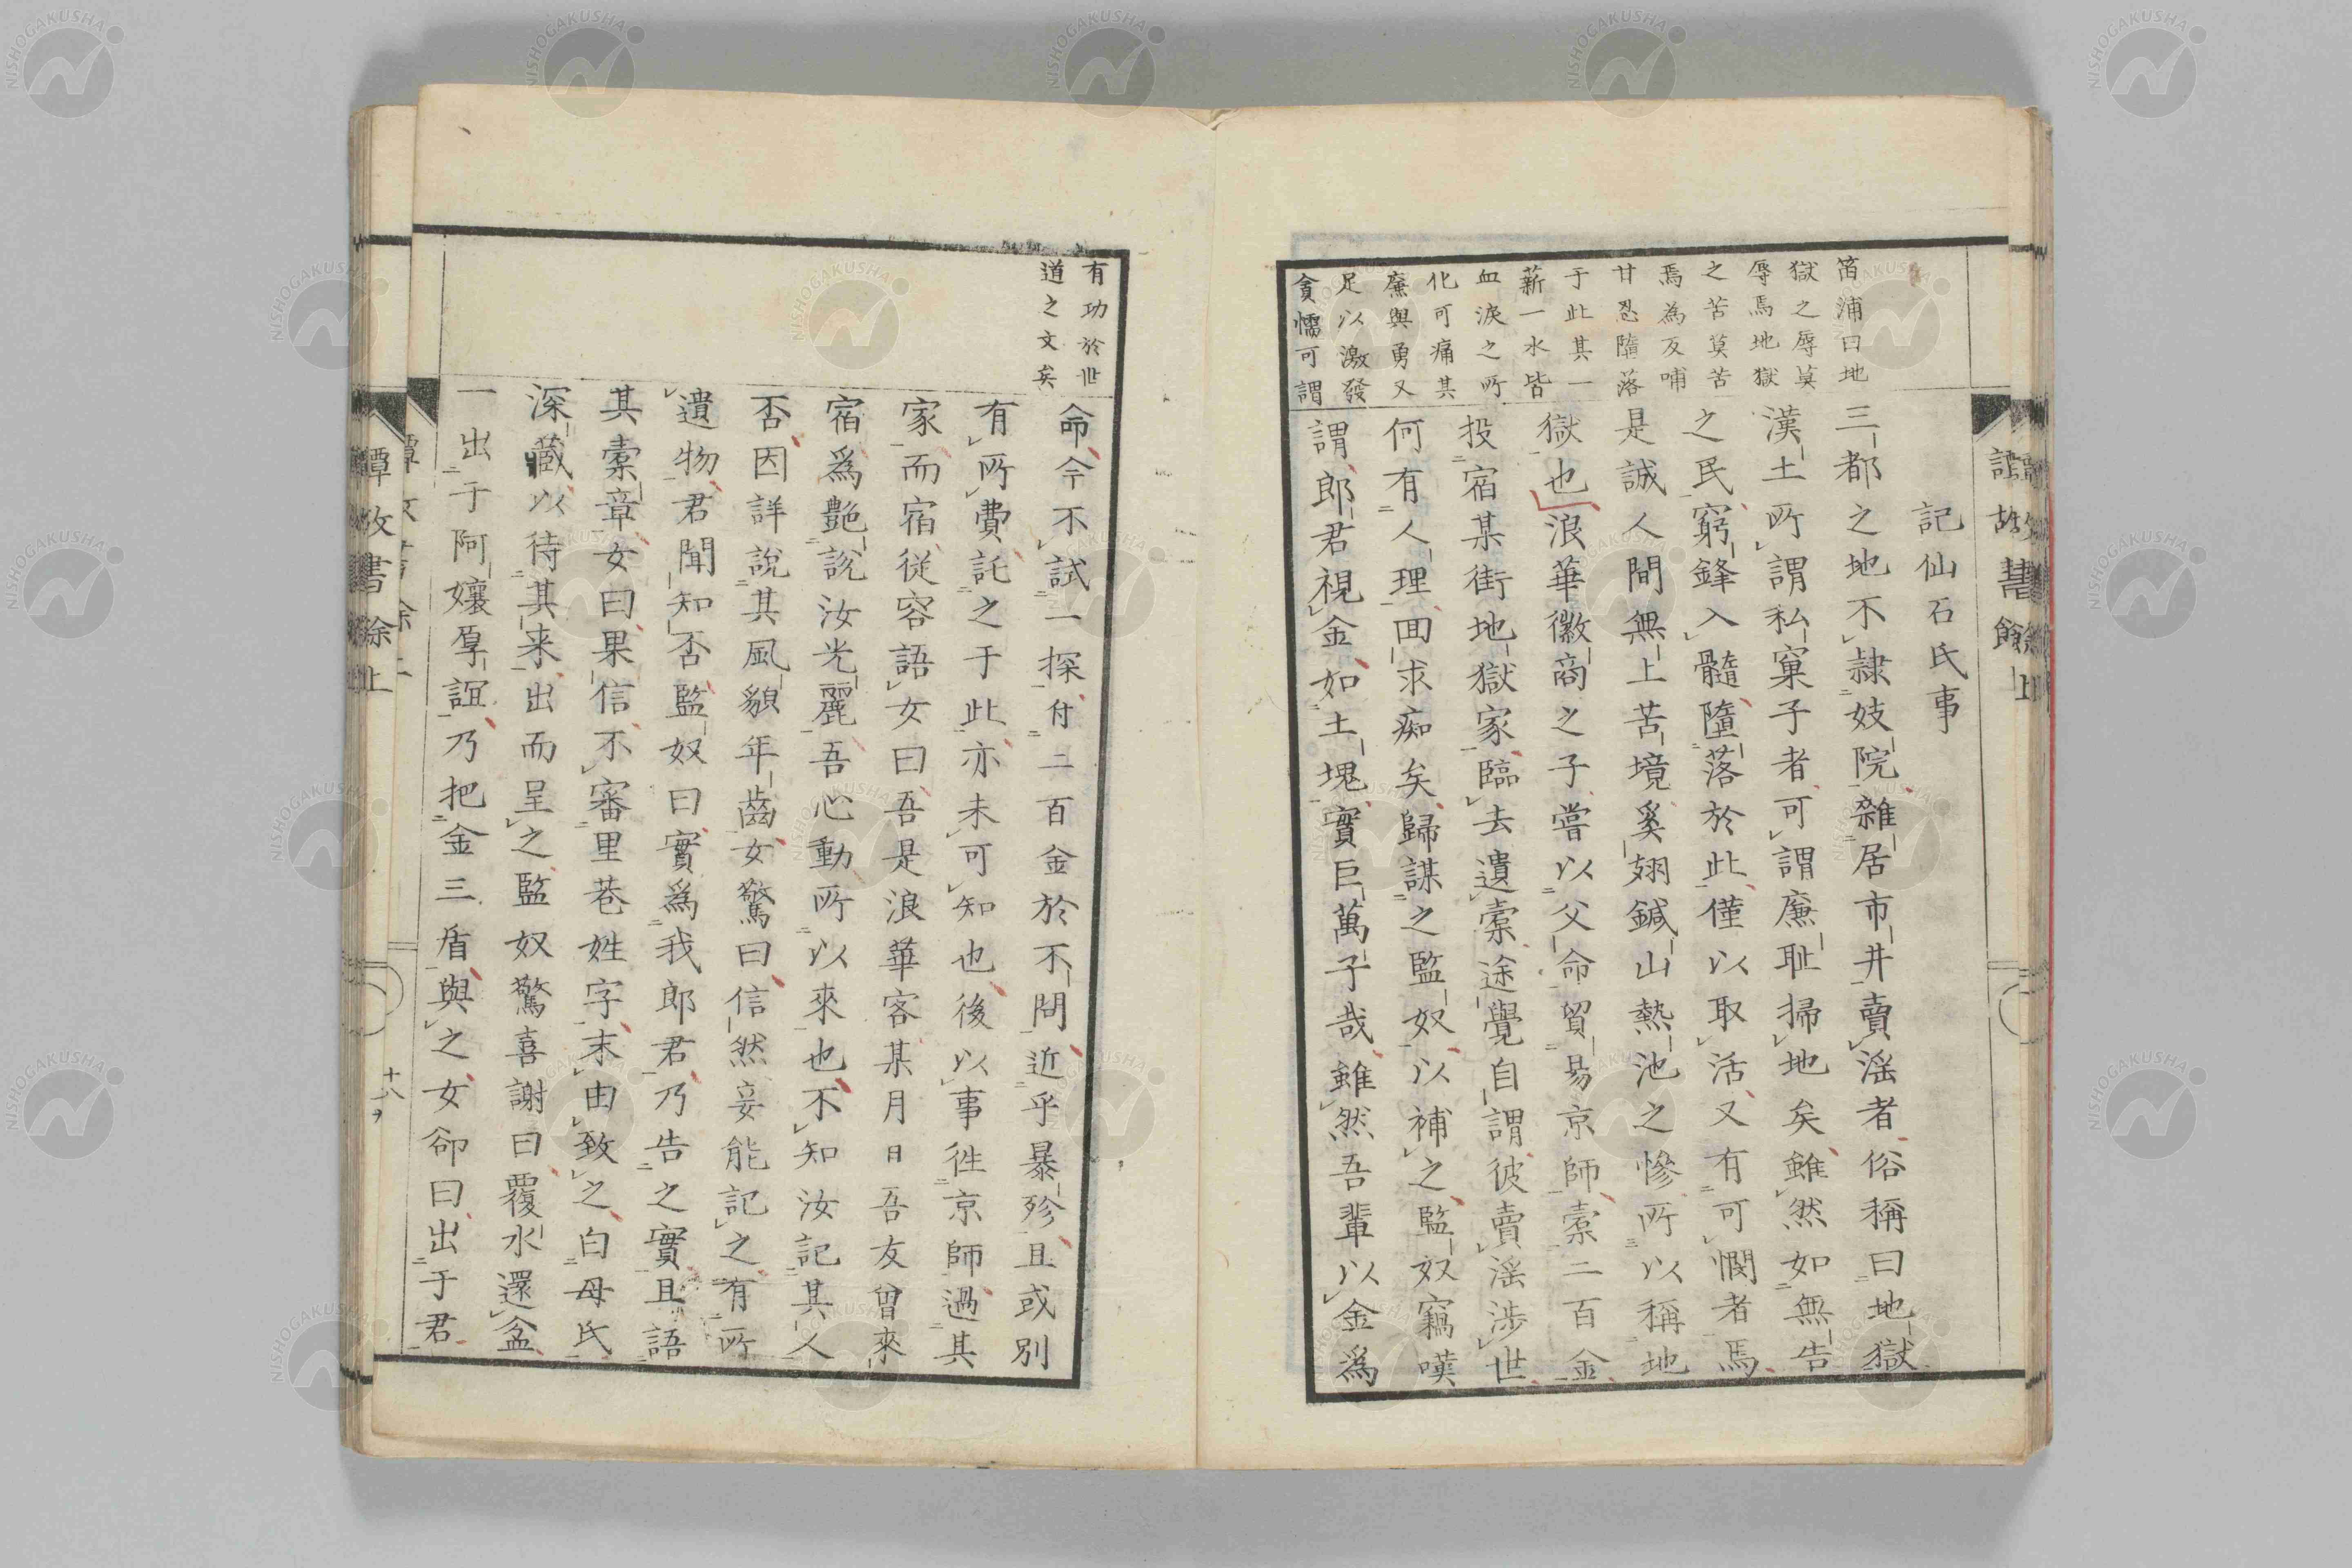 記仙石氏事
三都之地不隷妓院雜居市井賣淫者俗稱曰地獄
漢土所謂私窠子者可謂廉耻掃地矣雖然如無告
之民窮鋒入髓墮落於此僅以取活又有可憫者焉
是誠人間無上苦境奚翅鍼山熱池之慘所以稱地
獄也浪華徽商之子嘗以父命貿易京師橐二百金
投宿某街地獄家臨去遺橐途覺自謂彼賣淫涉世
何有人理回求痴矣歸謀之監奴以補之監奴竊嘆
謂郎君視金如土塊實巨萬子哉雖然吾輩以金爲
笛浦曰地
獄之辱莫
辱焉地獄
之苦莫苦
焉為反哺
甘忍墮落
于此其一
薪一水皆
血淚之所
化可痛其
廉與勇又
足以激發
貪懦可謂
命今不試一探付二百金於不問近乎暴殄且或別
有所費託之于此亦未可知也後以事徃京師過其
家而宿從容語女曰吾是浪華客某月日吾友曾來
宿爲艶說汝光麗吾心動所以來也不知汝記其人
否因詳說其風貌年齒女驚曰信然妾能記之有所
遺物君聞知否監奴曰實爲我郎君乃告之實且語
其橐章女曰果信不審里巷姓字末由致之白母氏
深藏以待其来出而呈之監奴驚喜謝曰覆水還盆
一出于阿孃厚誼乃把金三盾與之女卻曰出于君
有功於世
道之文矣
譚故書餘上
十八
NISHOGAKUSHA